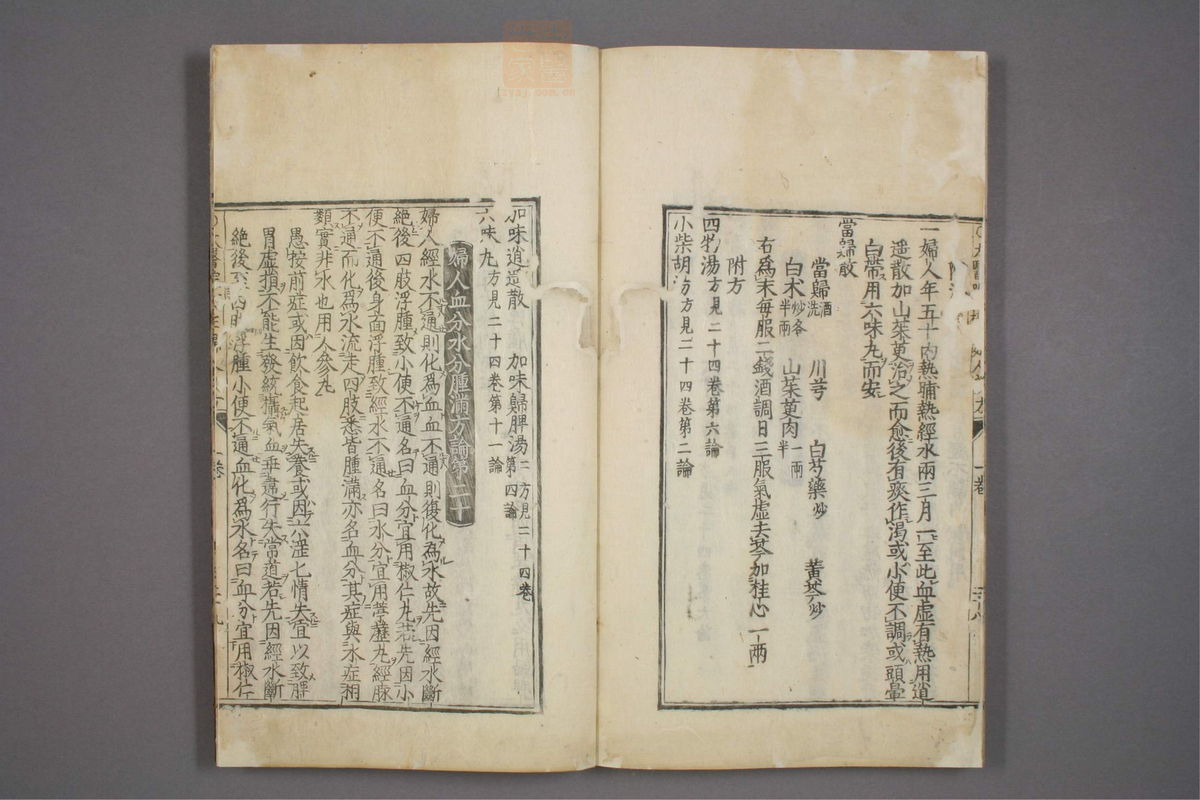 一婦人年五十内熱晡熱經水兩三月一至此血虛有熱用逍
遥散加山茱萸治之而愈後有痰作渴或小便不調或頭暈
白帶用六味丸而安
當歸散
當歸酒洗 川芎 白芍藥炒 黃芩炒
白朮炒各半兩 山茱萸肉一兩半
右爲末每服二錢酒調日三服氣虛去芩加桂心一兩
附方
四物湯方見二十四卷第六論
小柴胡湯方見二十四卷第二論
加味逍遥散 加味歸脾湯二方見二十四卷第四論
六味丸方見二十四卷第十一論
婦人血分水分腫滿方論第二十
婦人經水不通則化爲血血不通則復化爲水故先因經水斷
絶後四肢浮腫致小便不通名曰血分宜用椒仁丸若先因小
便不通後身面浮腫致經水不通名曰水分宜用葶藶丸經脉
不通而化爲水流走四肢悉皆腫滿亦名血分其症與水症相
類實非水也用人參丸
愚按前症或因飲食起居失養或因六淫七情失宜以致脾
胃虛損不能生發統攝氣血乖違行失常道若先因經水斷
絶後至四肢浮腫小便不通血化爲水名曰血分宜用椒仁